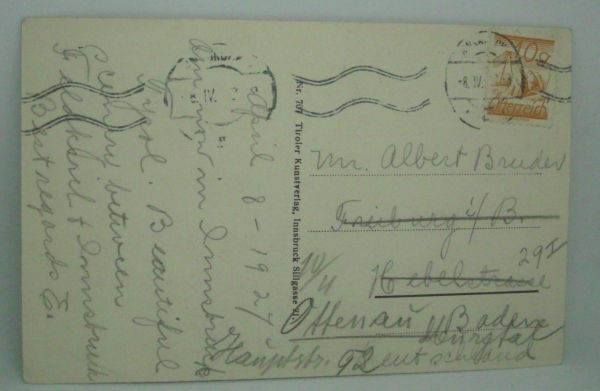 April 8 - 1927
Am now in Innsbruck
Tyrol. Beautiful
scenery between
Feldkirch & Innsbruck
Best regards E.
Nr. 707 Tiroler Kunstverlag, Innsbruck Sillgasse 21.
8. IV.
10g
Österreich
Mr. Albert Bruder
Freiburg i/B.
29 I
Hebelstrasse
Ottenau Baden
Murgtal
Hauptstr. 92 Deutschland